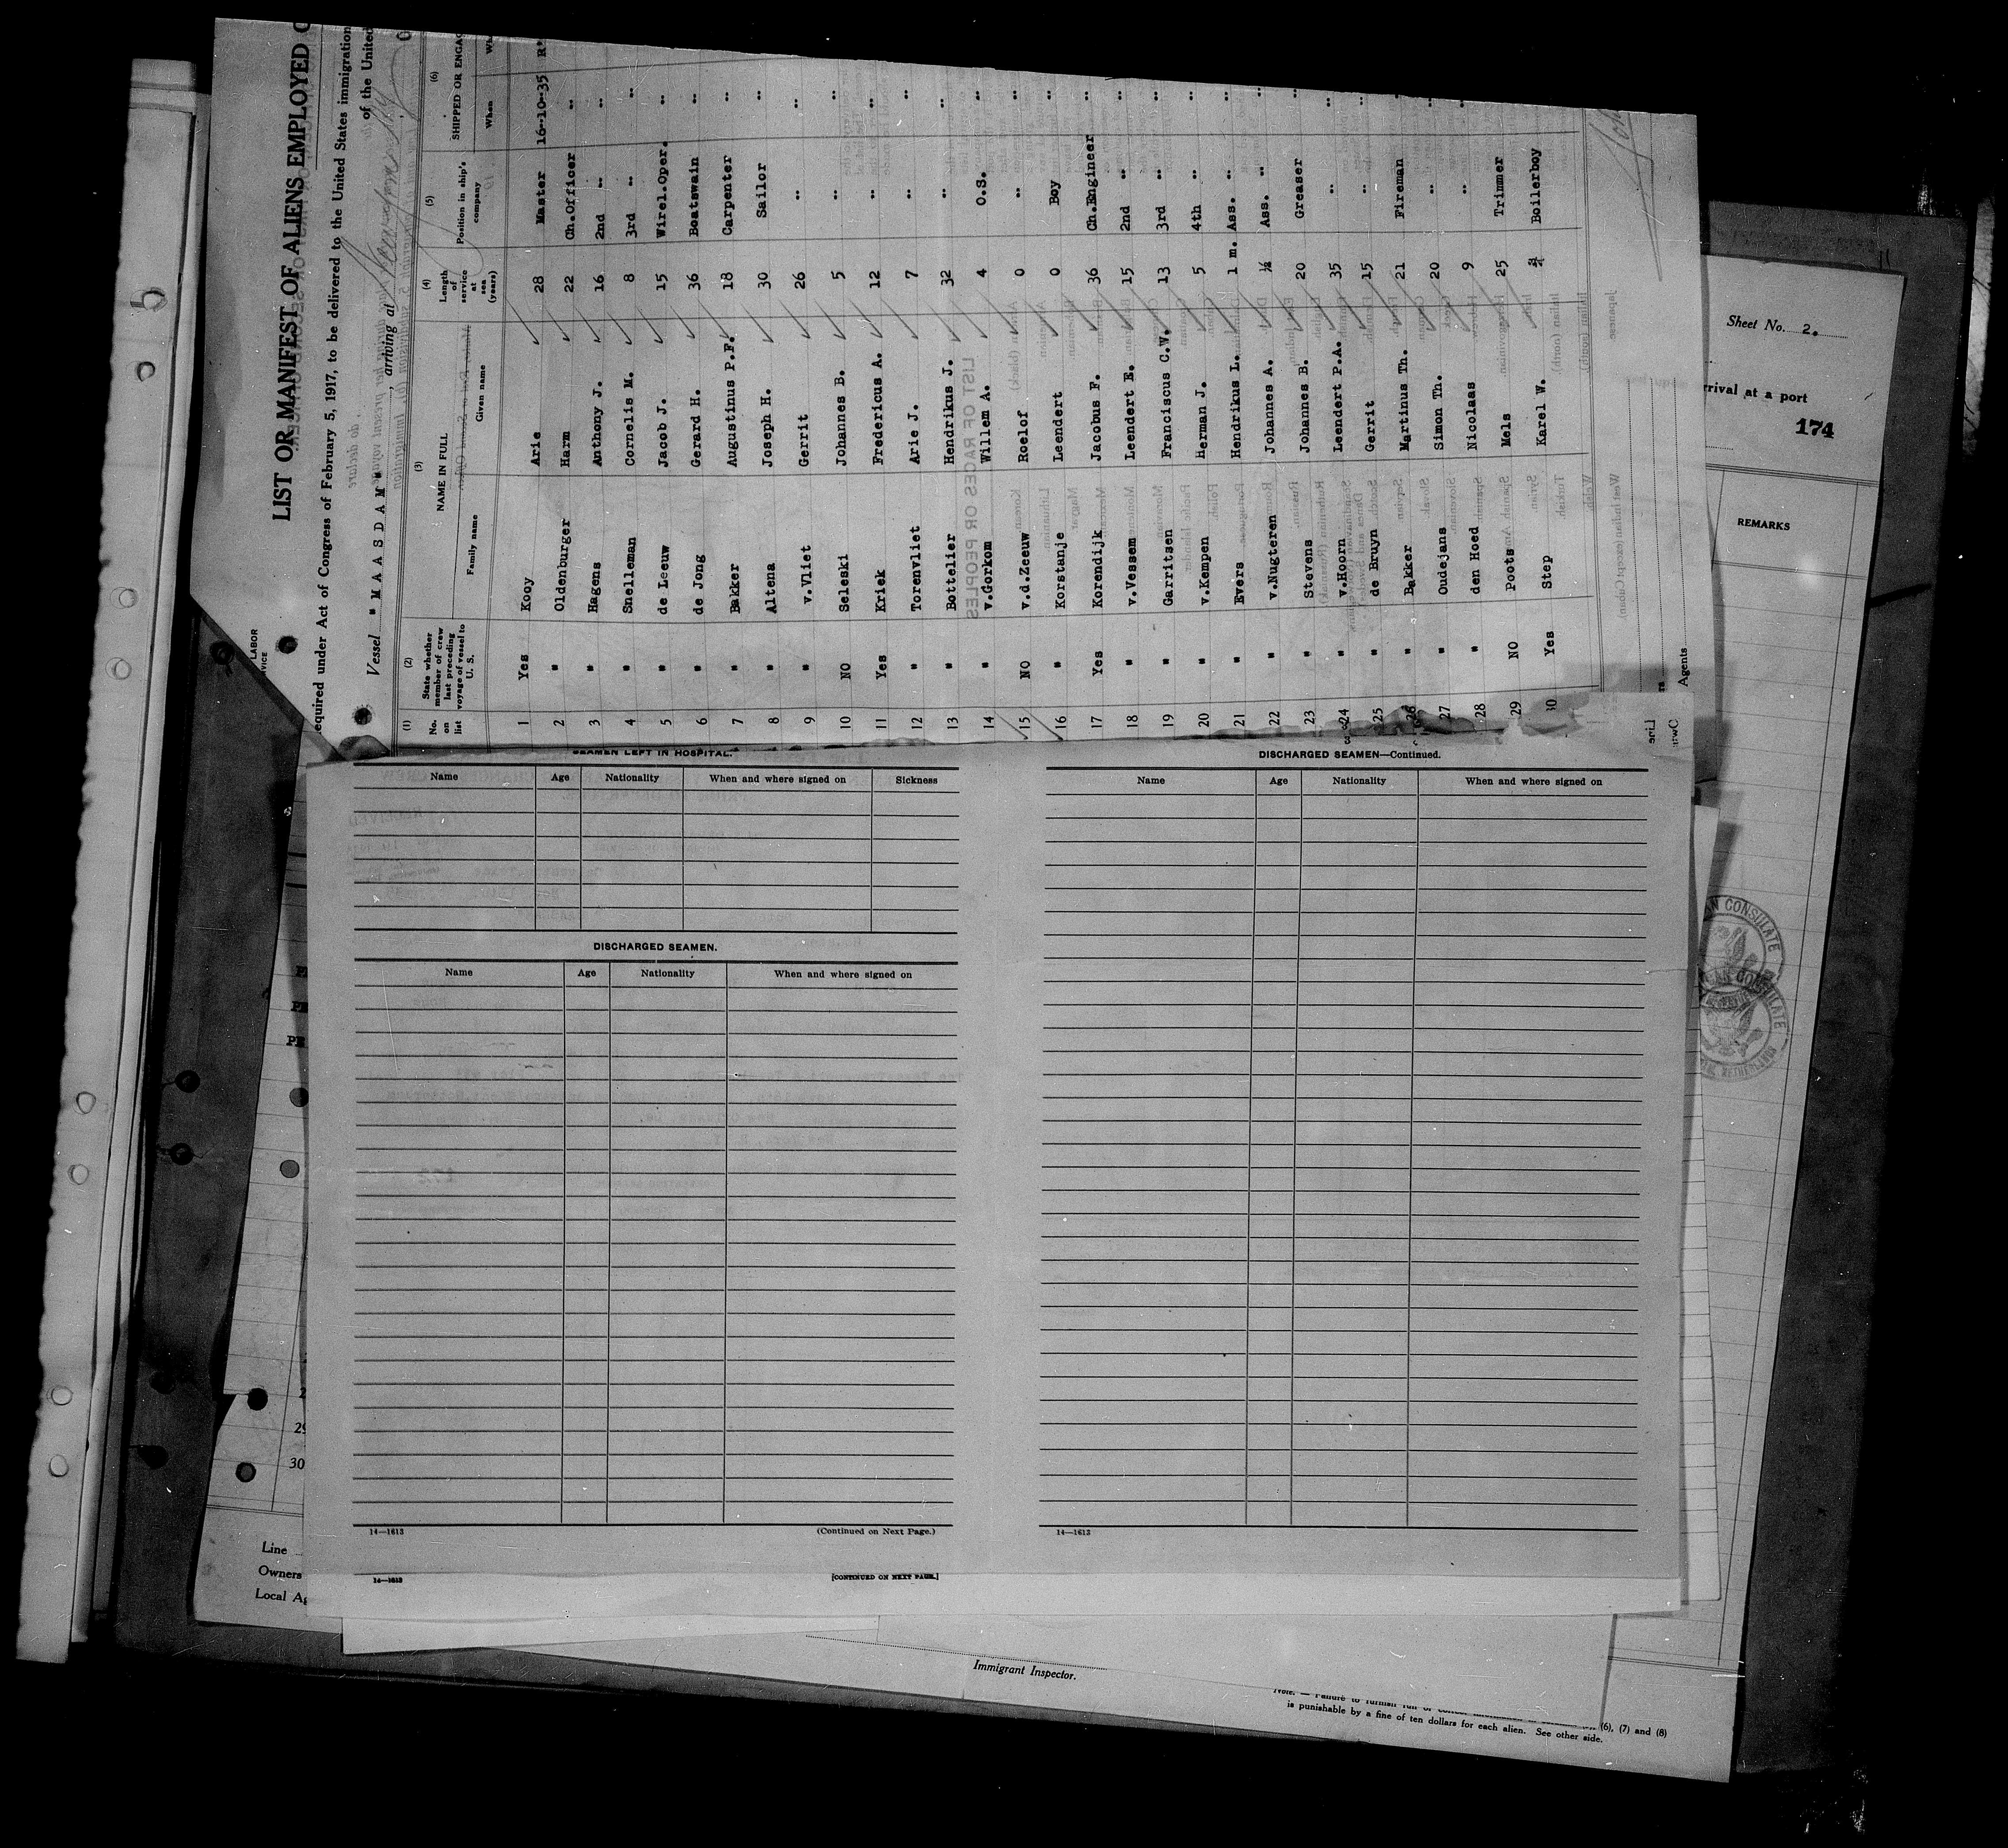 LIST OR MANIFEST OF ALIENS EMPLOYED
equired under Act of Congress of February 5, 1917, to be delivered to the United States immigration
of the United
Vessel "MAASDAM", arriving at
(1) (2) (3) (4) (5) (6)
No. on list
State whether member of crew last preceding voyage of vessel to U. S.
NAME IN FULL
Family name Given name
Length of service at sea (years)
Position in ship's company
SHIPPED OR ENGAG
When Wh
1 Yes Kooy Arie 28 Master 16-10-35
2 " Oldenburger Harm 22 Ch.Officer ..
3 " Hagens Anthony J. 16 2nd .. ..
4 " Snelleman Cornelis M. 8 3rd .. ..
5 " de Leeuw Jacob J. 15 Wirel.Oper. ..
6 " de Jong Gerard H. 36 Boatswain ..
7 " Bakker Augustinus P.F. 18 Carpenter ..
8 " Altena Joseph H. 30 Sailor ..
9 " v.Vliet Gerrit 26 .. ..
10 NO Seleski Johannes B. 5 .. ..
11 Yes Kriek Fredericus A. 12 .. ..
12 " Torenvliet Arie J. 7 .. ..
13 " Bottelier Hendrikus J. 32 .. ..
14 " v.Gorkom Willem A. 4 O.S. ..
15 NO v.d.Zeeuw Roelof 0 .. ..
16 " Korstanje Leendert 0 Boy ..
17 Yes Korendijk Jacobus F. 36 Ch.Engineer ..
18 " v.Vessem Leendert E. 15 2nd .. ..
19 " Garritsen Franciscus C.W. 13 3rd .. ..
20 " v.Kempen Herman J. 5 4th .. ..
21 " Evers Hendrikus L. 1 m. Ass. .. ..
22 " v.Nugteren Johannes A. ½ Ass. .. ..
23 " Stevens Johannes B. 20 Greaser ..
24 " v.Hoorn Leendert P.A. 35 .. ..
25 " de Bruyn Gerrit 15 .. ..
26 " Bakker Martinus Th. 21 Fireman ..
27 " Oudejans Simon Th. 20 .. ..
28 " den Hoed Nicolaas 9 .. ..
29 NO Poots Mels 25 Trimmer
30 Yes Step Karel W. ¾ Boilerboy
Agents
LABOR
VICE
Sheet No. 2.
rrival at a port
174
REMARKS
SEAMEN LEFT IN HOSPITAL.
Name Age Nationality When and where signed on Sickness
DISCHARGED SEAMEN.
Name Age Nationality When and where signed on
14—1613 (Continued on Next Page.)
14—1613 [CONTINUED ON NEXT PAGE.]
DISCHARGED SEAMEN—Continued.
Name Age Nationality When and where signed on
14—1613
29
30
Line
Owners
Local Ag
AN CONSULATE
CONSULATE
NETHERLANDS
Immigrant Inspector.
(6), (7) and (8)
is punishable by a fine of ten dollars for each alien. See other side.